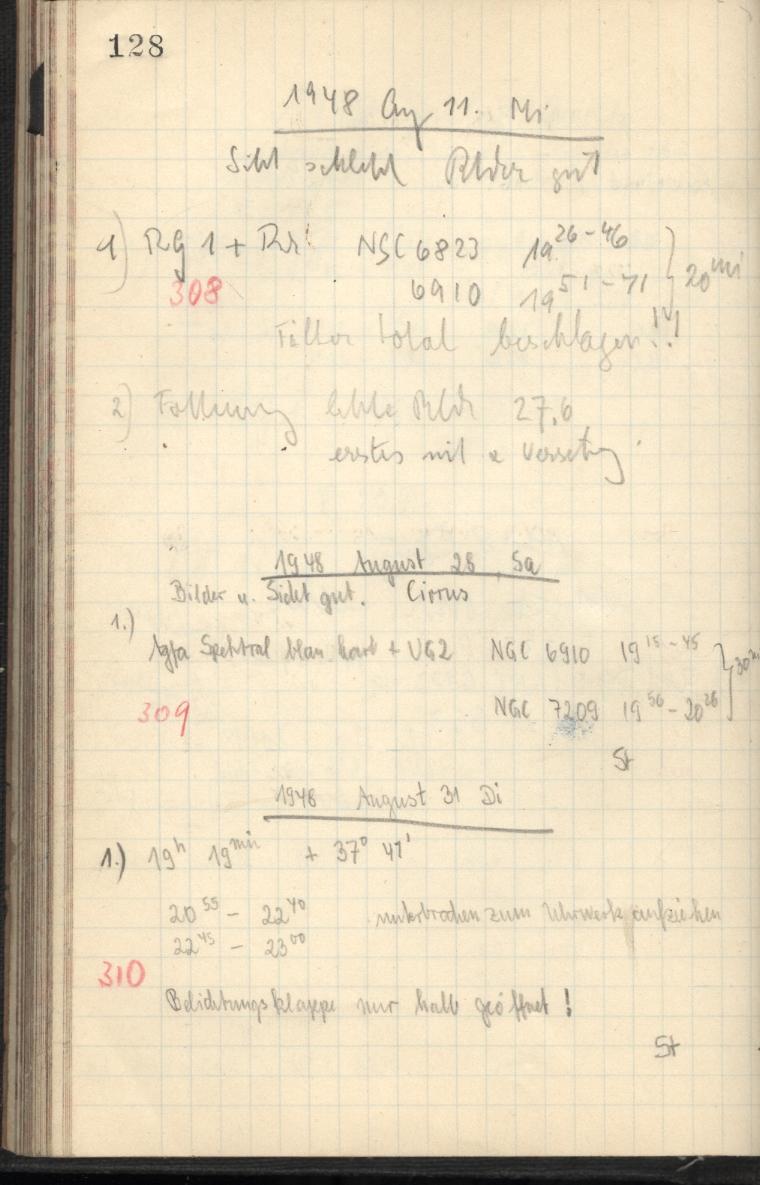 128
1948 Aug 11. Mi
Sicht schlecht Bilder gut
1) RG 1 + NGC 6823 19 26-46
308 6910 19 51-71 } 20 mi
Filter total beschlagen!!
2) letzte Bilder 27,6
erstes mit Versetzg.
1948 August 28, Sa
Bilder u. Sicht gut. Cirrus
1.)
Agfa Spektral blau hart + UG2 NGC 6910 19 15-45 } 30 m
309 NGC 7209 19 56 - 20 26
St
1948 August 31 Di
1.) 19h 19min + 37° 41'
20 55 - 22 40 unterbrochen zum Uhrwerk aufziehen
22 45 - 23 00
310
Belichtungsklappe nur halb geöffnet!
St